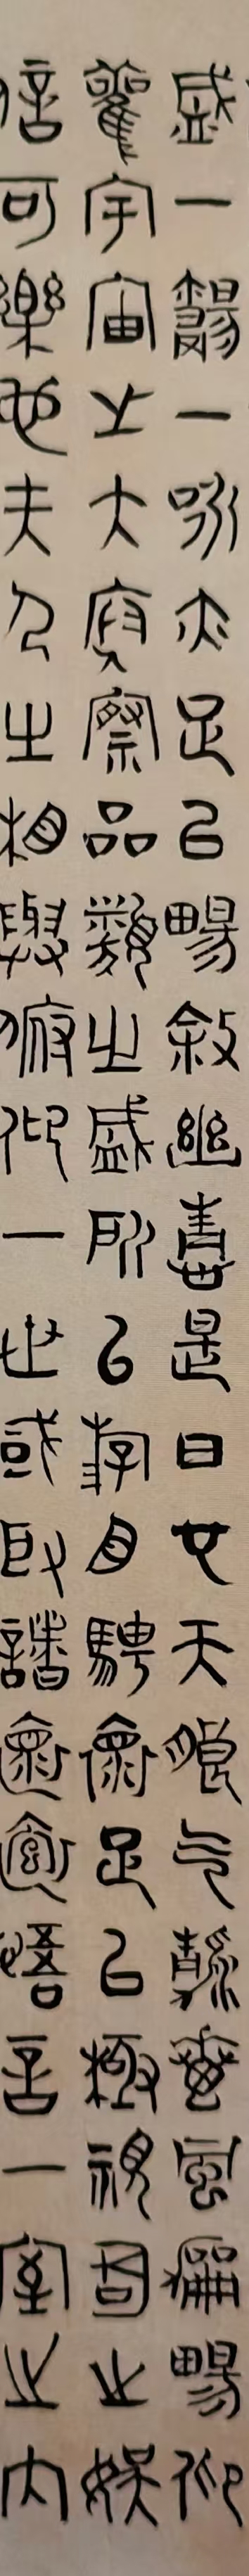 盛一觴一詠亦足以暢敘幽情是日也天朗气清惠風和暢仰
觀宇宙之大俯察品類之盛所以游目騁懷足以極視之娛
信可樂也夫人之相與俯仰一世或取諸懷抱悟言一室之內